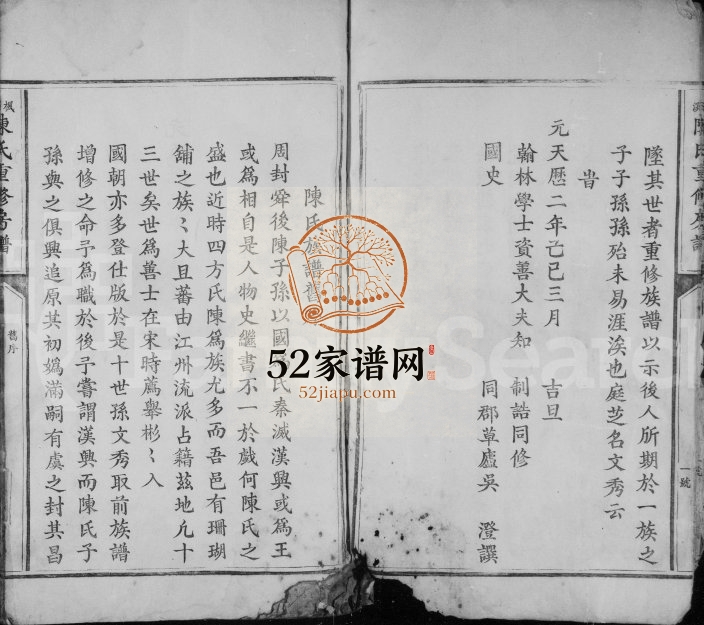 墜其世者重修族譜以示後人所期於一族之
子子孫孫殆未易涯涘也庭芝名文秀云
旹
元天歷二年己巳三月 吉旦
翰林學士資善大夫知 制誥同修
國史 同郡草廬吳 澄譔
陳氏族譜舊
周封舜後陳子孫以國 氏秦滅漢興或為王
或為相自是人物史繼書不一於戲何陳氏之
盛也近時四方氏陳為族尤多而吾邑有珊瑚
舖之族〻大且蕃由江州流派占籍茲地凢十
三世矣世為善士在宋時薦舉彬〻入
國朝亦多登仕版於是十世孫文秀取前族譜
增修之命予為職於後予嘗謂漢興而陳氏子
孫與之俱興追原其初媯滿嗣有虞之封其昌
陳氏重修族譜
一號
楓
陳氏重修房譜
舊序
52家谱网
52jiapu.com